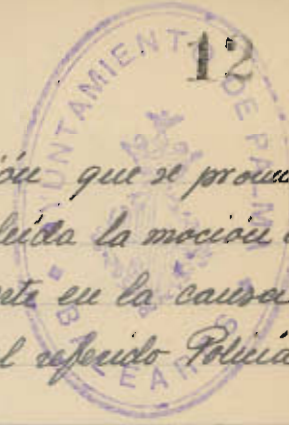 12
AYUNTAMIENTO DE PALMA
BALEARES
ión que se promu
leída la moción
rte en la causa
l referido Policía